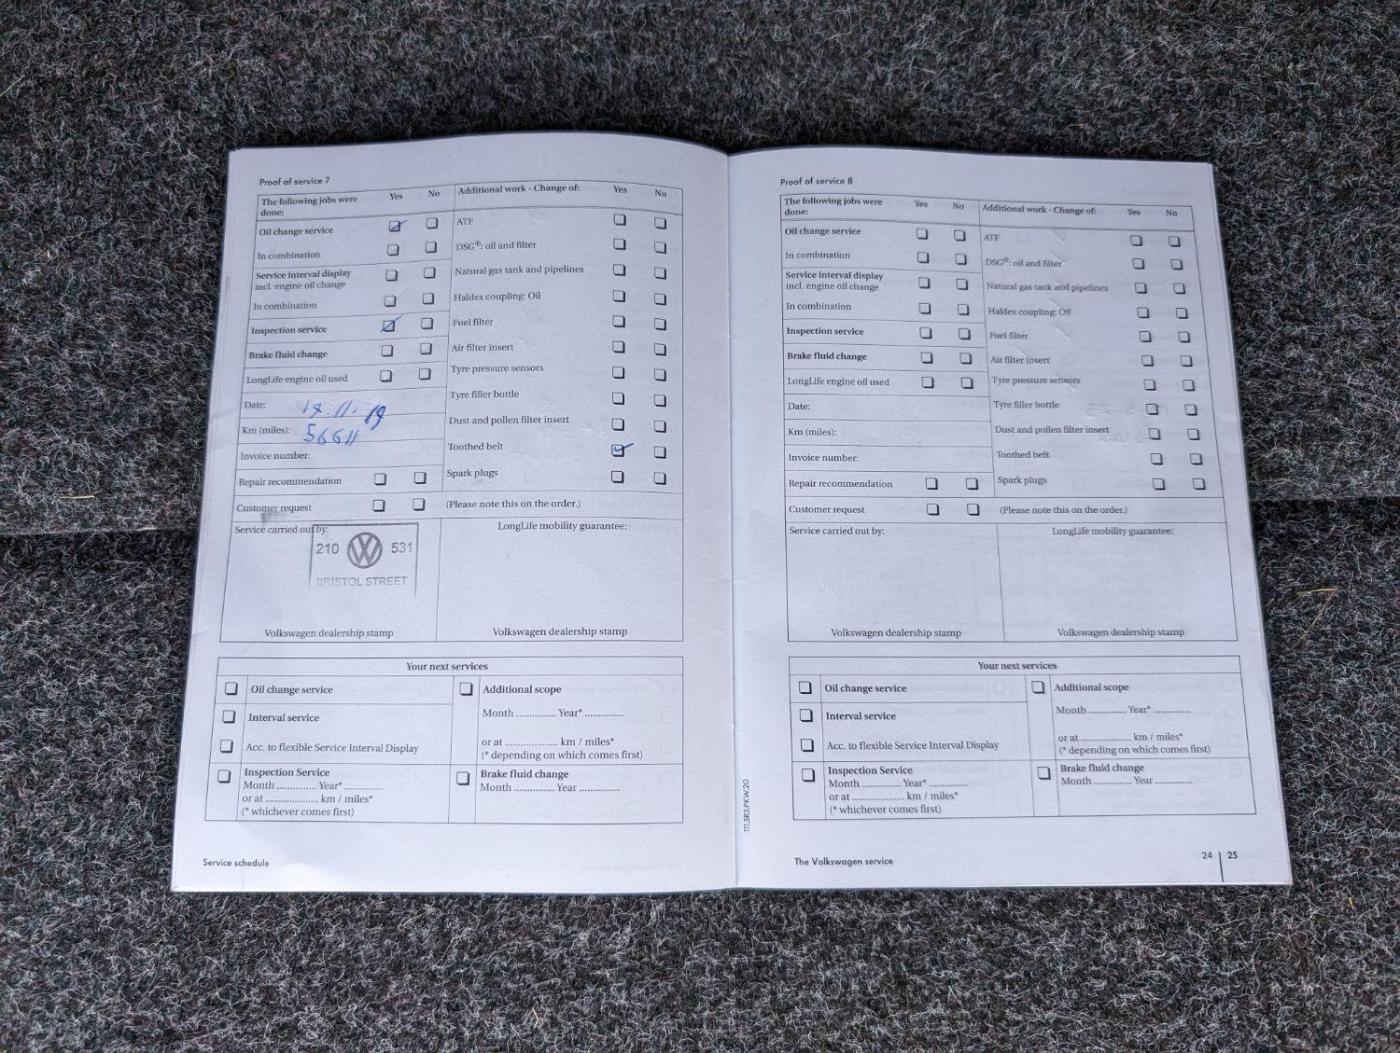 Proof of service 7
The following jobs were done: Yes No
Additional work - Change of: Yes No
Oil change service
In combination
Service interval display
incl. engine oil change
In combination
Inspection service
Brake fluid change
LongLife engine oil used
Date: 19.11.19
Km (miles): 56611
Invoice number:
Repair recommendation
Customer request
ATF
DSG®: oil and filter
Natural gas tank and pipelines
Haldex coupling: Oil
Fuel filter
Air filter insert
Tyre pressure sensors
Tyre filler bottle
Dust and pollen filter insert
Toothed belt
Spark plugs
(Please note this on the order.)
Service carried out by:
210 VW 531
BRISTOL STREET
Volkswagen dealership stamp
LongLife mobility guarantee:
Volkswagen dealership stamp
Your next services
Oil change service
Interval service
Acc. to flexible Service Interval Display
Inspection Service
Month ............. Year* .............
or at .................... km / miles*
(* whichever comes first)
Additional scope
Month ............. Year* .............
or at .................... km / miles*
(* depending on which comes first)
Brake fluid change
Month ............. Year .............
Service schedule
Proof of service 8
The following jobs were done: Yes No
Additional work - Change of: Yes No
Oil change service
In combination
Service interval display
incl. engine oil change
In combination
Inspection service
Brake fluid change
LongLife engine oil used
Date:
Km (miles):
Invoice number:
Repair recommendation
Customer request
ATF
DSG®: oil and filter
Natural gas tank and pipelines
Haldex coupling: Oil
Fuel filter
Air filter insert
Tyre pressure sensors
Tyre filler bottle
Dust and pollen filter insert
Toothed belt
Spark plugs
(Please note this on the order.)
Service carried out by:
Volkswagen dealership stamp
LongLife mobility guarantee:
Volkswagen dealership stamp
Your next services
Oil change service
Interval service
Acc. to flexible Service Interval Display
Inspection Service
Month ............. Year* .............
or at .................... km / miles*
(* whichever comes first)
Additional scope
Month ............. Year* .............
or at .................... km / miles*
(* depending on which comes first)
Brake fluid change
Month ............. Year .............
111.5R3.PKW.20
The Volkswagen service
24 | 25